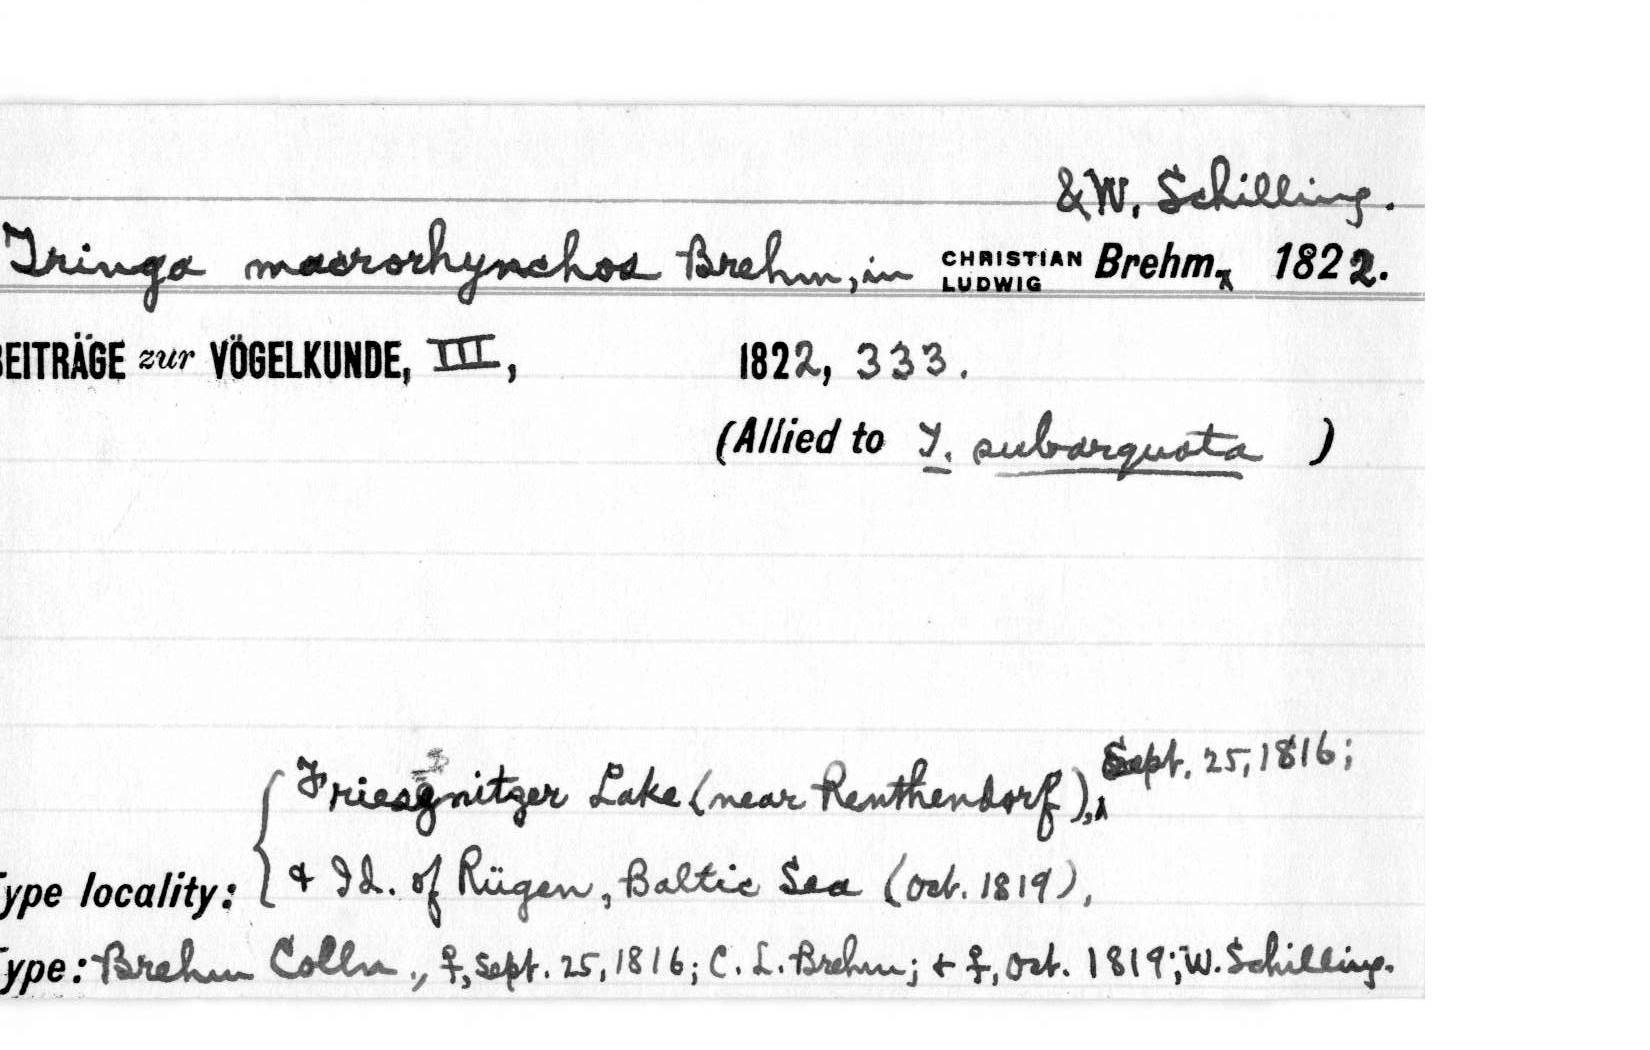 & W. Schilling.
Tringa macrorhynchos Brehm, in CHRISTIAN LUDWIG Brehm ^ 1822.
BEITRÄGE zur VÖGELKUNDE, III, 1822, 333.
(Allied to T. subarquata )
Friesgnitzer Lake (near Renthendorf), ^ Sept. 25, 1816;
Type locality: & Id. of Rügen, Baltic Sea (Oct. 1819),
Type: Brehm Colln., ♀, Sept. 25, 1816; C. L. Brehm; & ♀, Oct. 1819; W. Schilling.